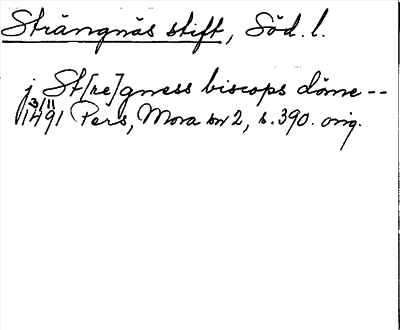 Strängnäs stift, Söd. l.
j St[re]gness biscops döme --
3/11 1491 Pers, Mora nr 2, s. 390. orig.